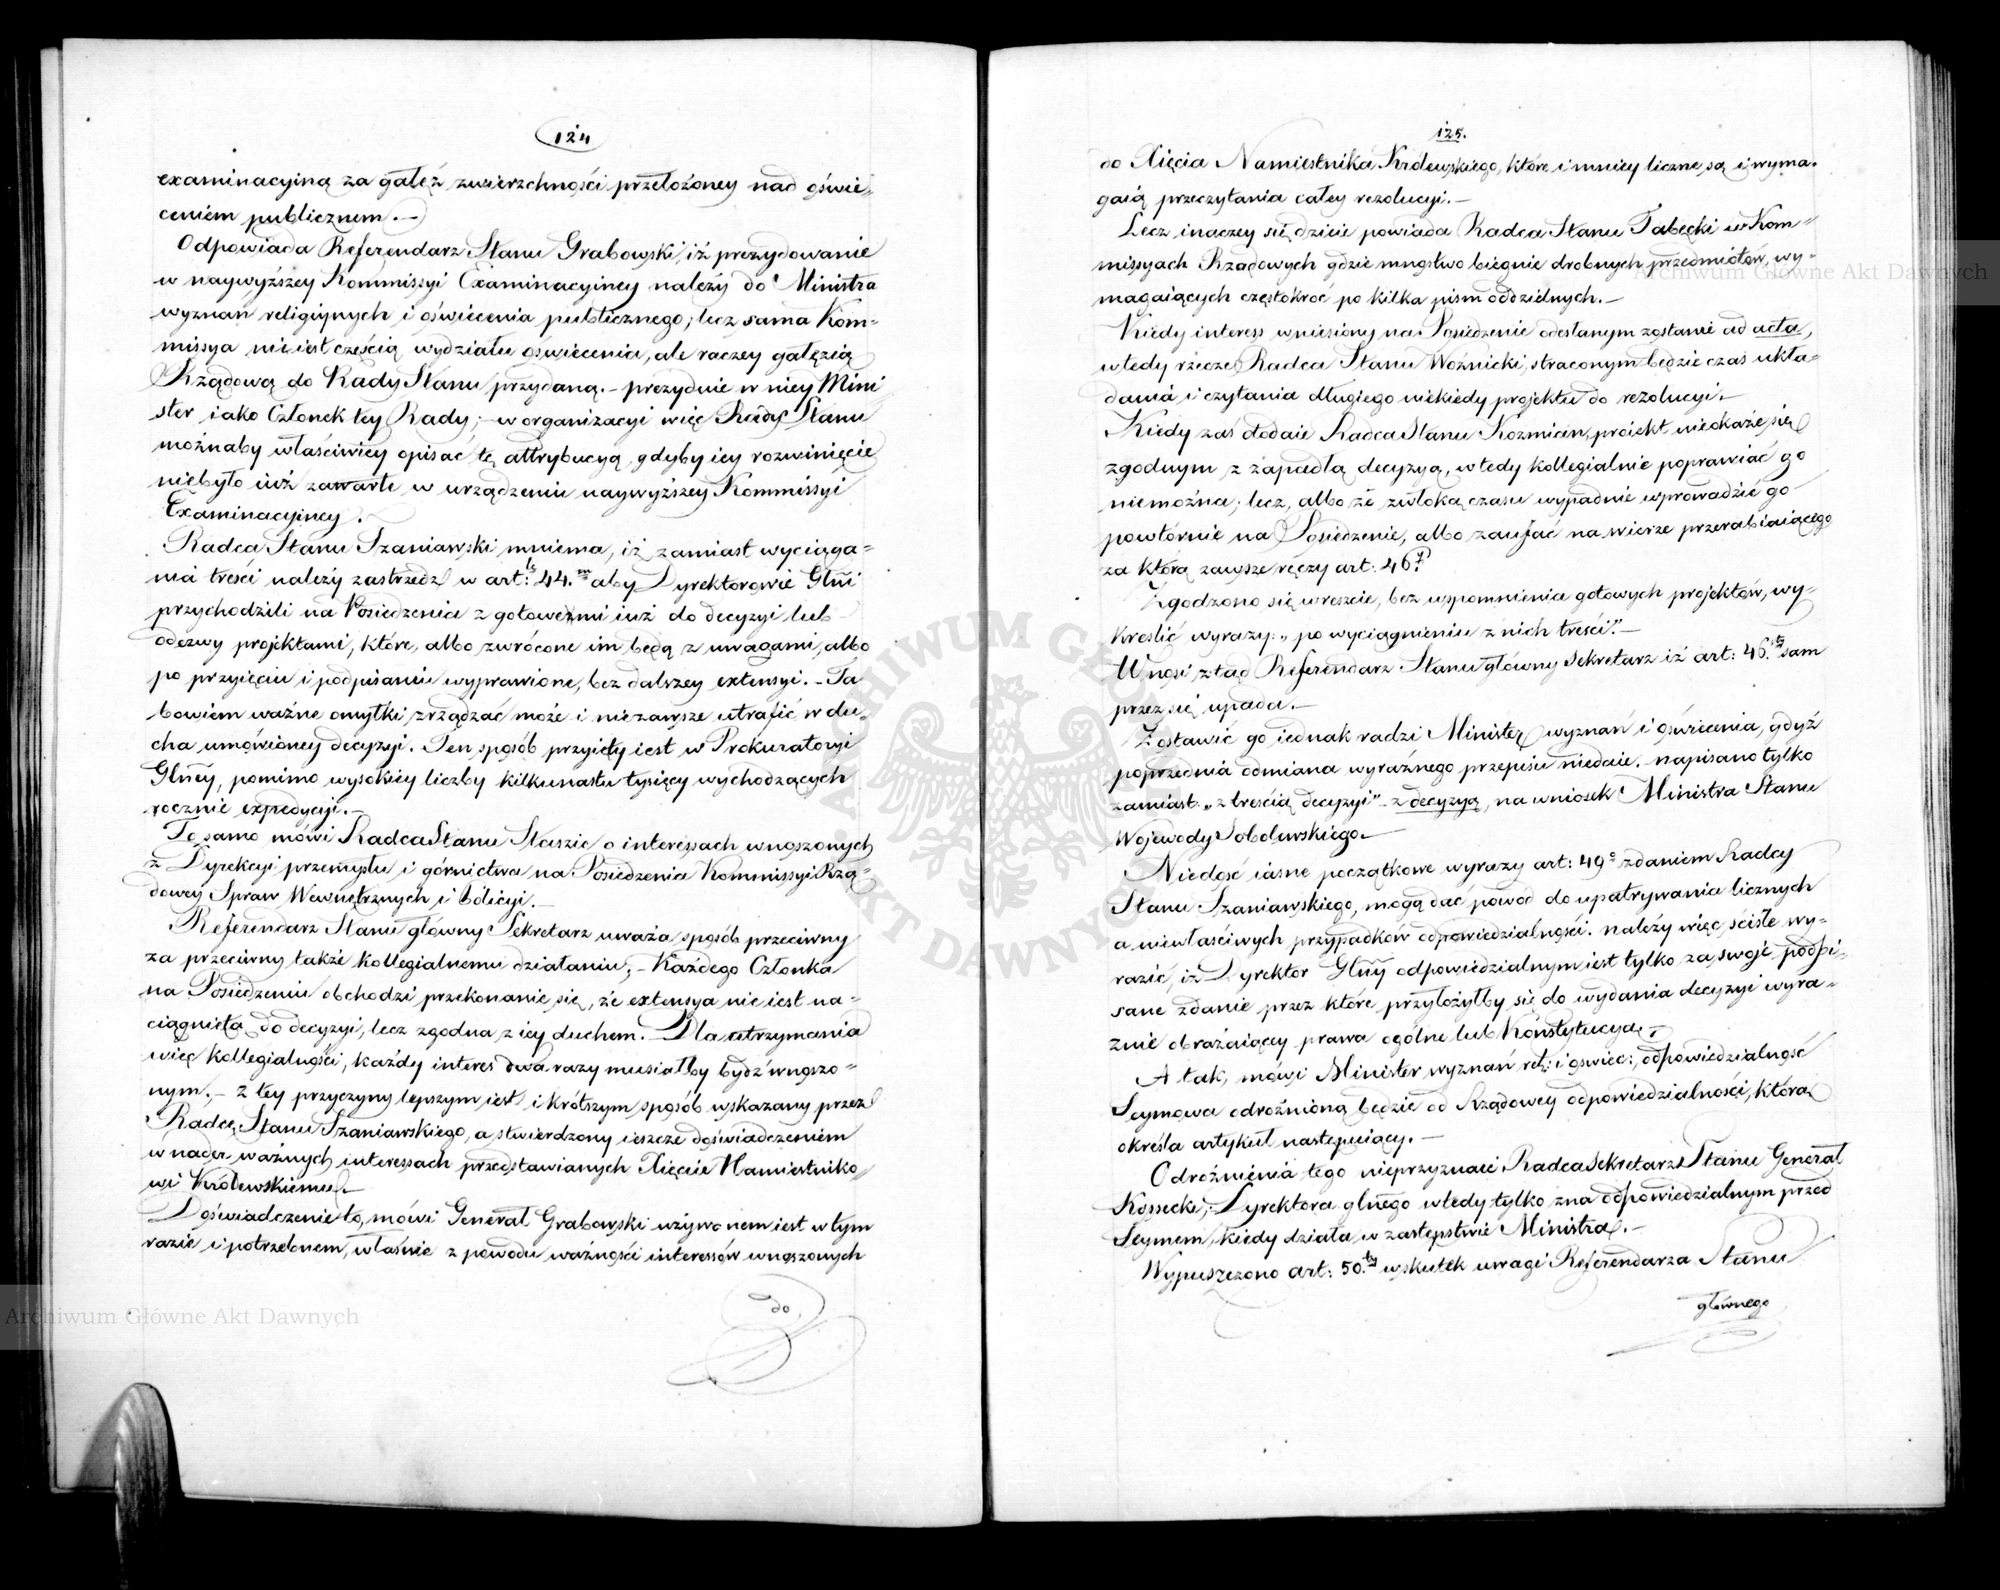 124
examinacyiną za gałęź zwierzchności przełożoney nad oświe-
ceniem publicznem. —
Odpowiada Referendarz Stanu Grabowski, iż prezydowanie
w naywyższey Kommissyi Examinacyiney należy do Ministra
wyznań religiynych i oświecenia publicznego; lecz sama Kom-
missya nie iest częścią wydziału oświecenia, ale raczey gałęzią
Rządową do Rady Stanu przydaną. – prezyduie w niey Mini
ster iako Członek tey Rady; – w organizacyi więc Rady Stanu
możnaby właściwiey opisać tę attrybucyą, gdyby iey rozwinięcie
niebyło iuż zawarte w urządzeniu naywyższey Kommissyi
Examinacyiney.
Radca Stanu Szaniawski mniema, iż zamiast wyciąga-
nia treści należy zastrzedz w art: 44.m aby Dyrektorowie Glni
przychodzili na Posiedzenia z gotowemi iuż do decyzyi lub
odezwy projektami, które, albo zwrócone im będą z uwagami, albo
po przyięciu i podpisaniu wyprawione, bez dalszey extensyi. – Ta
bowiem ważne omyłki zrządzać może i niezawsze utrafić w du-
cha umówioney decyzyi. Ten sposób przyięty iest w Prokuratoryi
Glney, pomimo wysokiey liczby kilkunastu tysięcy wychodzących
rocznie expedycyi. —
To samo mówi Radca Stanu Staszic o interessach wnoszonych
z Dyrekcyi przemysłu i górnictwa na Posiedzenia Kommissyi Rzą-
dowey Spraw Wewnętrznych i Policyi. —
Referendarz Stanu główny Sekretarz uważa sposób przeciwny
za przeciwny także kollegialnemu działaniu; – Każdego Członka
na Posiedzeniu obchodzi przekonanie się, że extensya nie iest na-
ciągnięta do decyzyi, lecz zgodna z iey duchem. – Dla utrzymania
więc kollegialności, każdy interes dwa razy musiałby bydź wnoszo-
nym; – z tey przyczyny lepszym iest i krótszym sposób wskazany przez
Radcę Stanu Szaniawskiego, a stwierdzony ieszcze doświadczeniem
w nader ważnych interessach przedstawianych Xięciu Namiestniko-
wi Królewskiemu. —
Doświadczenie to, mówi Generał Grabowski używanem iest w tym
razie i potrzebnem, właśnie z powodu ważności interessów wnoszonych
do
125.
do Xięcia Namiestnika Królewskiego, które i mniey liczne są i wyma-
gaią przeczytania całey rezolucyi. —
Lecz inaczey się dzieie powiada Radca Stanu Tabęcki w Kom-
missyach Rządowych gdzie mnóstwo biegnie drobnych przedmiotów, wy-
magaiących częstokroć po kilka pism oddzielnych. —
Kiedy interess wniesiony na Posiedzenie odesłanym zostanie ad acta,
wtedy rzecze Radca Stanu Woźnicki, straconym będzie czas ukła-
dania i czytania długiego niekiedy projektu do rezolucyi. —
Kiedy zaś dodaie Radca Stanu Kozmian, proiekt nieokaże się
zgodnym z zapadłą decyzyą, wtedy kollegialnie poprawiać go
niemożna; lecz, albo ze zwłoką czasu wypadnie wprowadzić go
powtórnie na Posiedzenie, albo zaufać na wierze przerabiaiącego
za którą zawsze ręczy art. 46ty
Zgodzono się wreszcie, bez wspomnienia gotowych projektów, wy-
kreślić wyrazy: „po wyciągnieniu z nich treści". —
Wnosi ztąd Referendarz Stanu główny Sekretarz iż art: 46.ty sam
przez się upada. —
Zostawić go iednak radzi Minister wyznań i oświecenia, gdyż
poprzednia odmiana wyraźnego przepisu niedaie. – napisano tylko
zamiast „z treścią decyzyi" – z decyzyą, na wniosek Ministra Stanu
Wojewody Sobolewskiego. —
Niedość iasne początkowe wyrazy art: 49o zdaniem Radcy
Stanu Szaniawskiego, mogą dać powód do upatrywania licznych
a niewłaściwych przypadków odpowiedzialności. należy więc, ściśle wy-
razić, iż Dyrektor Glny odpowiedzialnym iest tylko za swoje podpi-
sane zdanie przez które przyłożyłby się do wydania decyzyi wyra-
źnie obrażaiącey prawa ogólne lub Konstytucyą. —
A tak, mówi Minister wyznań rel: i oświec:, odpowiedzialność
Seymowa odróżnioną będzie od Rządowey odpowiedzialności, którą
określa artykuł następuiący. —
Odróżnienia tego nieprzyznaie Radca Sekretarz Stanu Generał
Kossecki; Dyrektora głnego wtedy tylko zna odpowiedzialnym przed
Seymem, kiedy działa w zastępstwie Ministra. —
Wypuszczono art: 50.ty wskutek uwagi Referendarza Stanu
głównego
Archiwum Główne Akt Dawnych
Archiwum Główne Akt Dawnych
ARCHIWUM GŁÓWNE AKT DAWNYCH